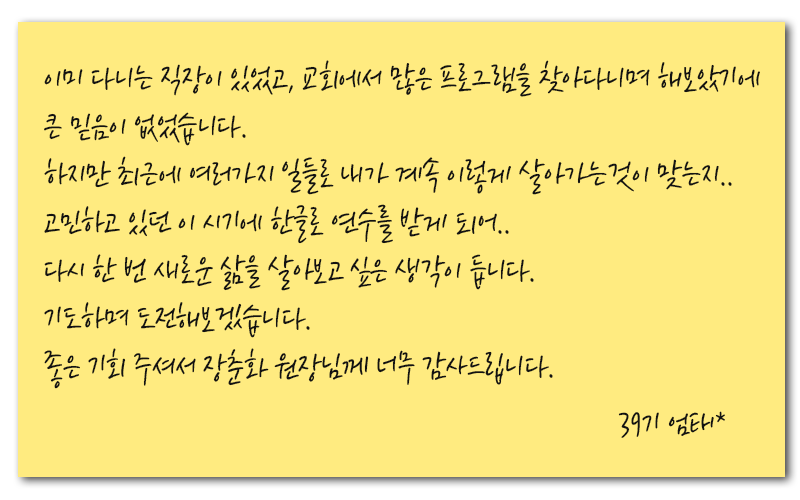 이미 다니는 직장이 있었고, 교회에서 많은 프로그램을 찾아다니며 해보았기에
큰 믿음이 없었습니다.
하지만 최근에 여러가지 일들로 내가 계속 이렇게 살아가는것이 맞는지..
고민하고 있던 이 시기에 한글로 연수를 받게 되어..
다시 한 번 새로운 삶을 살아보고 싶은 생각이 듭니다.
기도하며 도전해보겠습니다.
좋은 기회 주셔서 장춘화 원장님께 너무 감사드립니다.
39기 엄태*